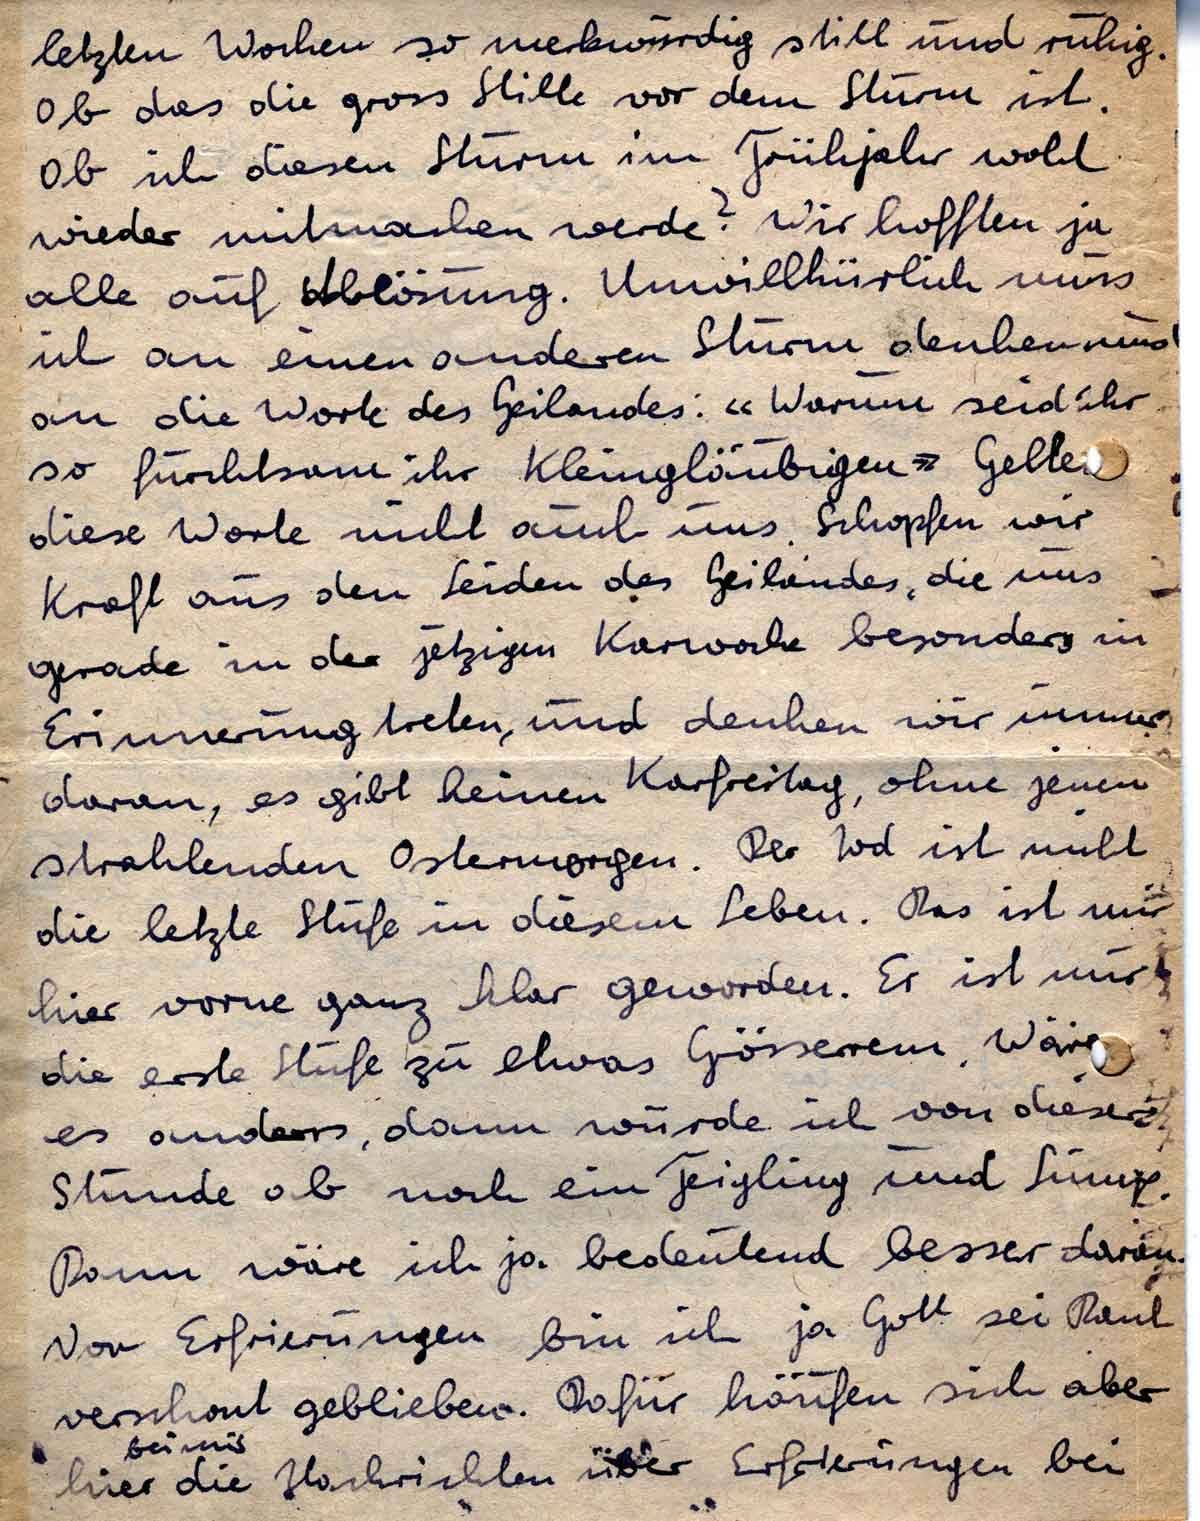 letzten Wochen so merkwürdig still und ruhig.
Ob das die gross Stille vor dem Sturm ist.
Ob ich diesen Sturm im Frühjahr wohl
wieder mitmachen werde? Wir hofften ja
alle auf Ablösung. Unwillkürlich muss
ich an einen anderen Sturm denken und
an die Worte des Heilandes: "Warum seid ihr
so furchtsam ihr Kleingläubigen" Gelten
diese Worte nicht auch uns. Schopfen wir
Kraft aus den Leiden des Heilandes, die uns
gerade in der jetzigen Karwoche besonders in
Erinnerung treten, und denken wir immer
daran, es gibt keinen Karfreitag, ohne jenen
strahlenden Ostermorgen. Der Tod ist nicht
die letzte Stufe in diesem Leben. Das ist mir
hier vorne ganz klar geworden. Er ist nur
die erste Stufe zu etwas Grösserem. Wäre
es anders, dann würde ich von dieser
Stunde ab noch ein Feigling und Lump.
Dann wäre ich ja bedeutend besser daran.
Von Erfrierungen bin ich ja Gott sei Dank
verschont geblieben. Dafür häufen sich aber
bei mir
hier die Nachrichten über Erfrierungen bei